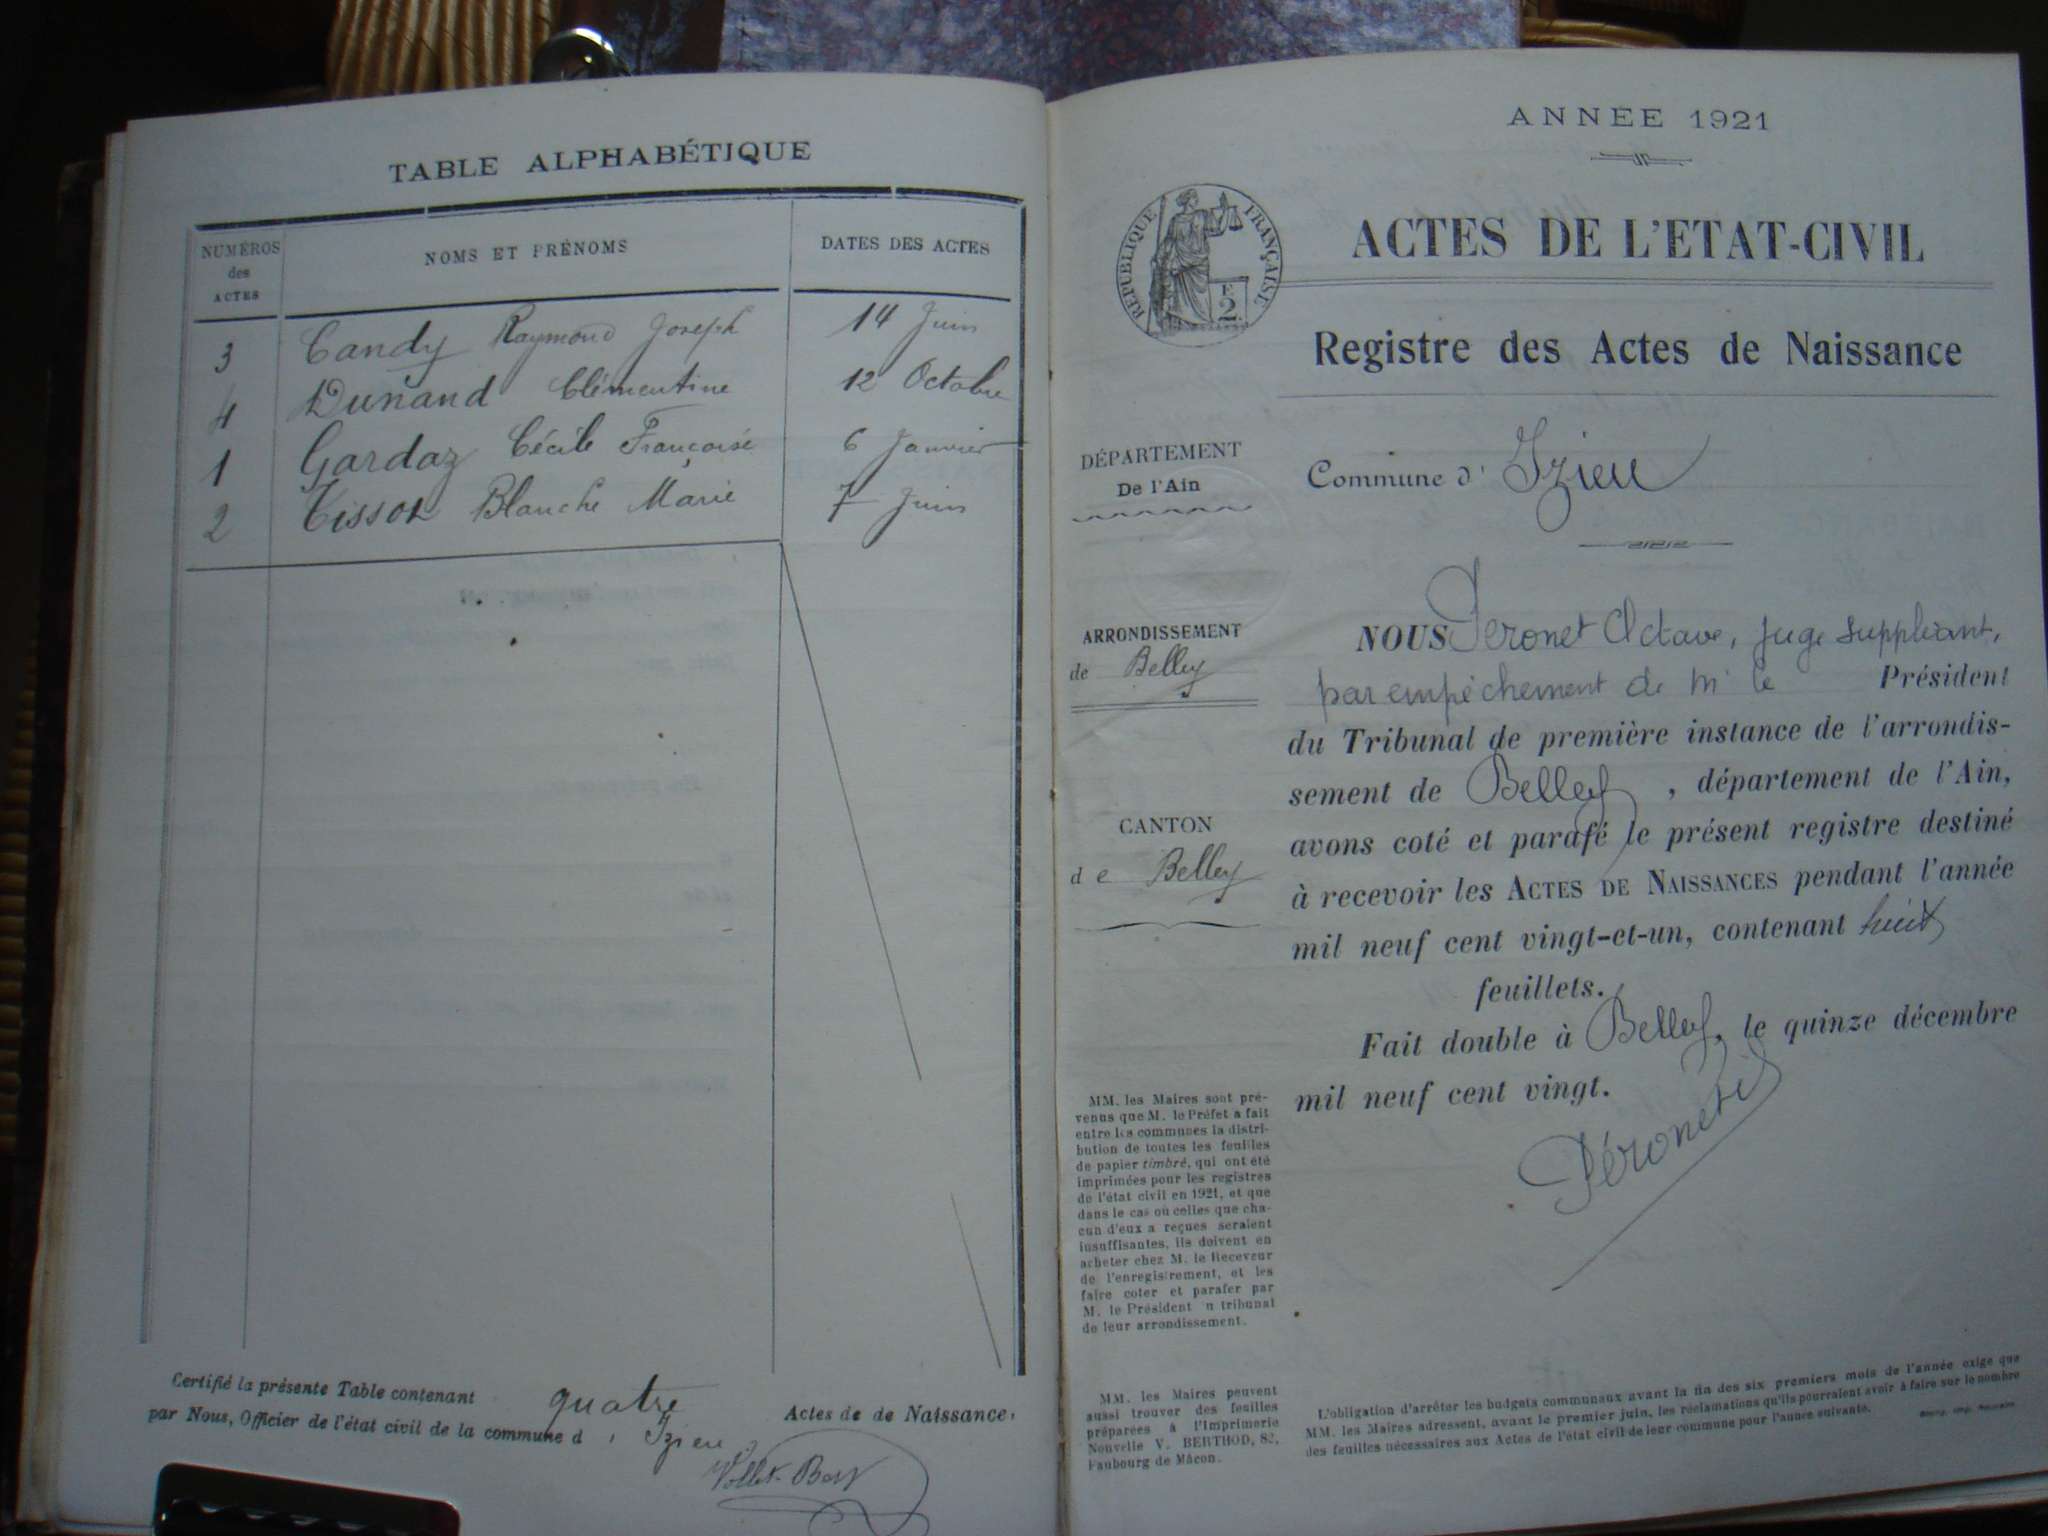 TABLE ALPHABÉTIQUE
NUMÉROS des ACTES
NOMS ET PRÉNOMS
DATES DES ACTES
3 Candy Raymond Joseph 14 Juin
4 Dunand Clémentine 12 Octobre
1 Gardaz Cécile Françoise 6 Janvier
2 Tissot Blanche Marie 7 Juin
Certifié la présente Table contenant quatre Actes de de Naissance,
par Nous, Officier de l'état civil de la commune d'Izieu
ANNÉE 1921
RÉPUBLIQUE FRANÇAISE
2 F.
ACTES DE L'ETAT-CIVIL
Registre des Actes de Naissance
DÉPARTEMENT
De l'Ain
Commune d'Izieu
ARRONDISSEMENT
de Belley
CANTON
de Belley
NOUS Péronet Octave, juge suppléant,
par empêchement de Mr le Président
du Tribunal de première instance de l'arrondis-
sement de Belley, département de l'Ain,
avons coté et parafé le présent registre destiné
à recevoir les ACTES DE NAISSANCES pendant l'année
mil neuf cent vingt-et-un, contenant huit
feuillets.
Fait double à Belley, le quinze décembre
mil neuf cent vingt.
Péronet
MM. les Maires sont pré-
venus que M. le Préfet a fait
entre les communes la distri-
bution de toutes les feuilles
de papier timbré, qui ont été
imprimées pour les registres
de l'état civil en 1921, et que
dans le cas où celles que cha-
cun d'eux a reçues seraient
insuffisantes, ils doivent en
acheter chez M. le Receveur
de l'enregistrement, et les
faire coter et parafer par
M. le Président n tribunal
de leur arrondissement.
MM. les Maires peuvent
aussi trouver des feuilles
préparées à l'Imprimerie
Nouvelle V. BERTHOD, 82,
Faubourg de Mâcon.
L'obligation d'arrêter les budgets communaux avant la fin des six premiers mois de l'année exige que
MM. les Maires adressent, avant le premier juin, les réclamations qu'ils pourraient avoir à faire sur le nombre
des feuilles nécessaires aux Actes de l'état civil de leur commune pour l'année suivante.